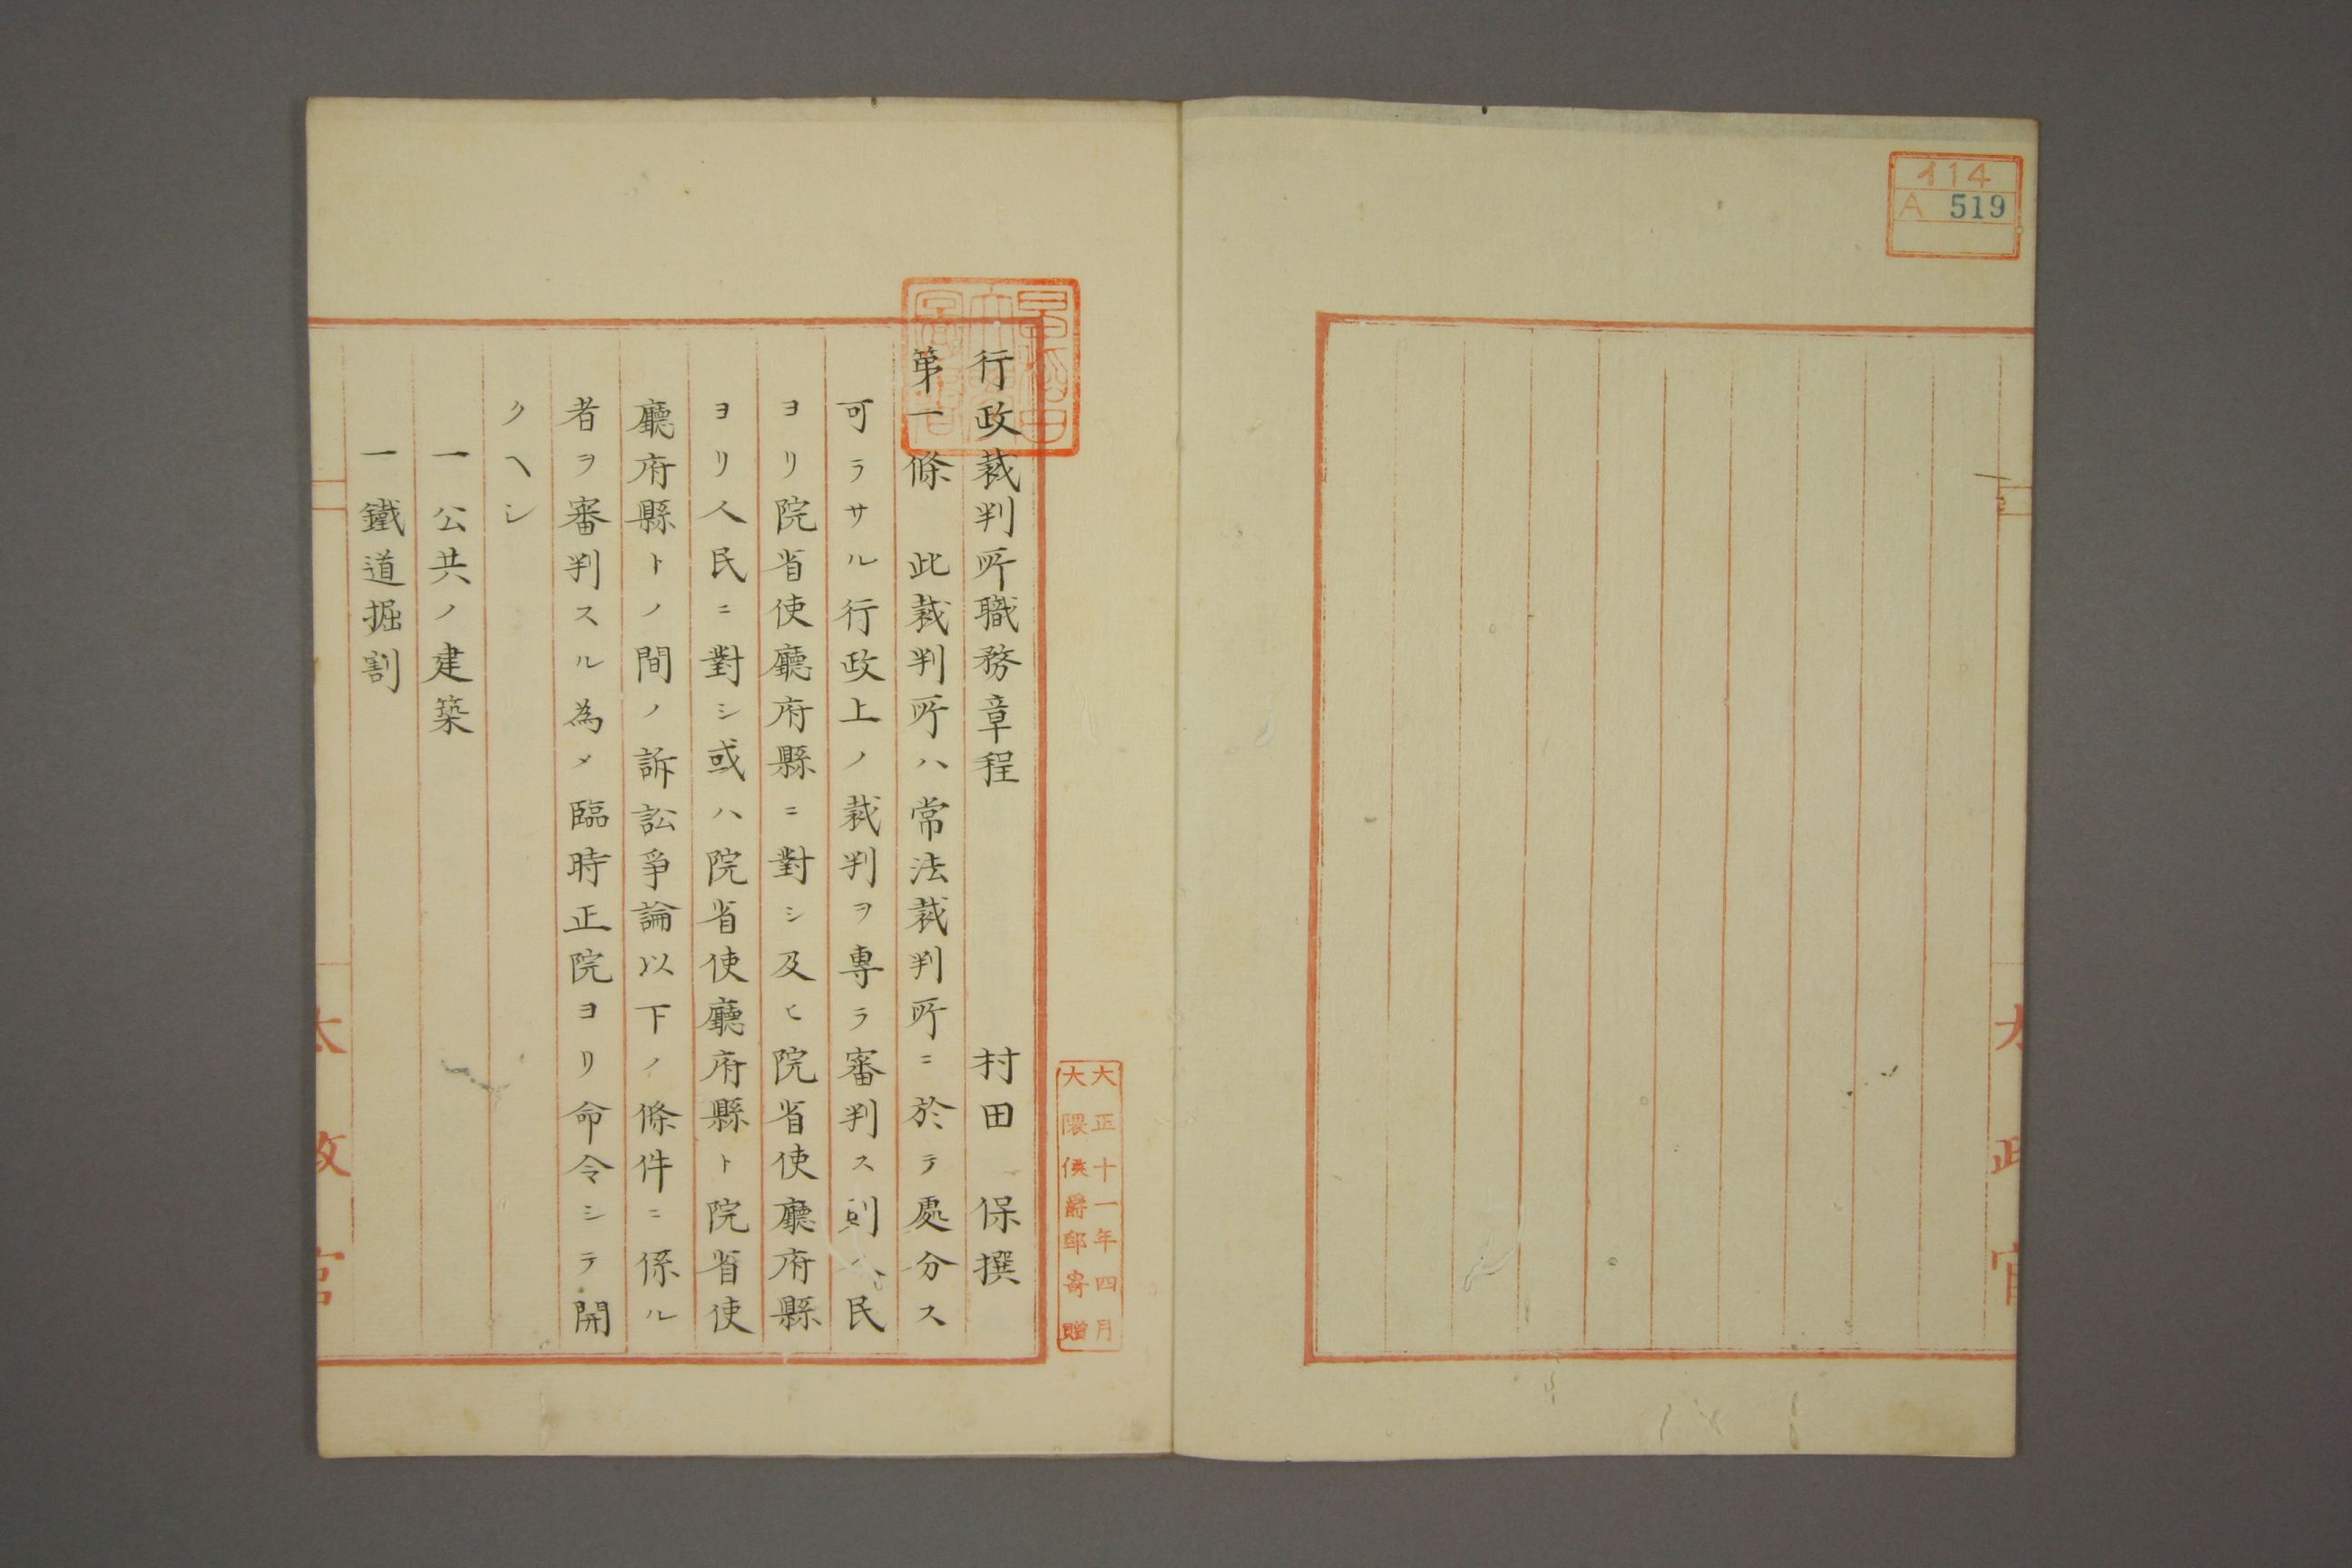 114
A 519
大正十一年四月
大隈侯爵邸寄贈
行政裁判所職務章程 村田 保撰
第一條 此裁判所ハ常法裁判所ニ於テ處分ス
可ラサル行政上ノ裁判ヲ專ラ審判ス則人民
ヨリ院省使廳府縣ニ對シ及ヒ院省使廳府縣
ヨリ人民ニ對シ或ハ院省使廳府縣ト院省使
廳府縣トノ間ノ訴訟爭論以下ノ條件ニ係ル
者ヲ審判スル為メ臨時正院ヨリ命令シテ開
クヘシ
一公共ノ建築
一鐵道掘割
太政官